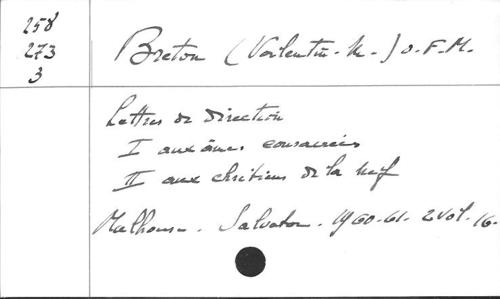 258
273
3
Breton (Valentin-M.) O.F.M.
Lettres de direction
I aux âmes consacrées
II aux chrétiens de la nef
Mulhouse. Salvator. 1960-61. 2 vol. 16.